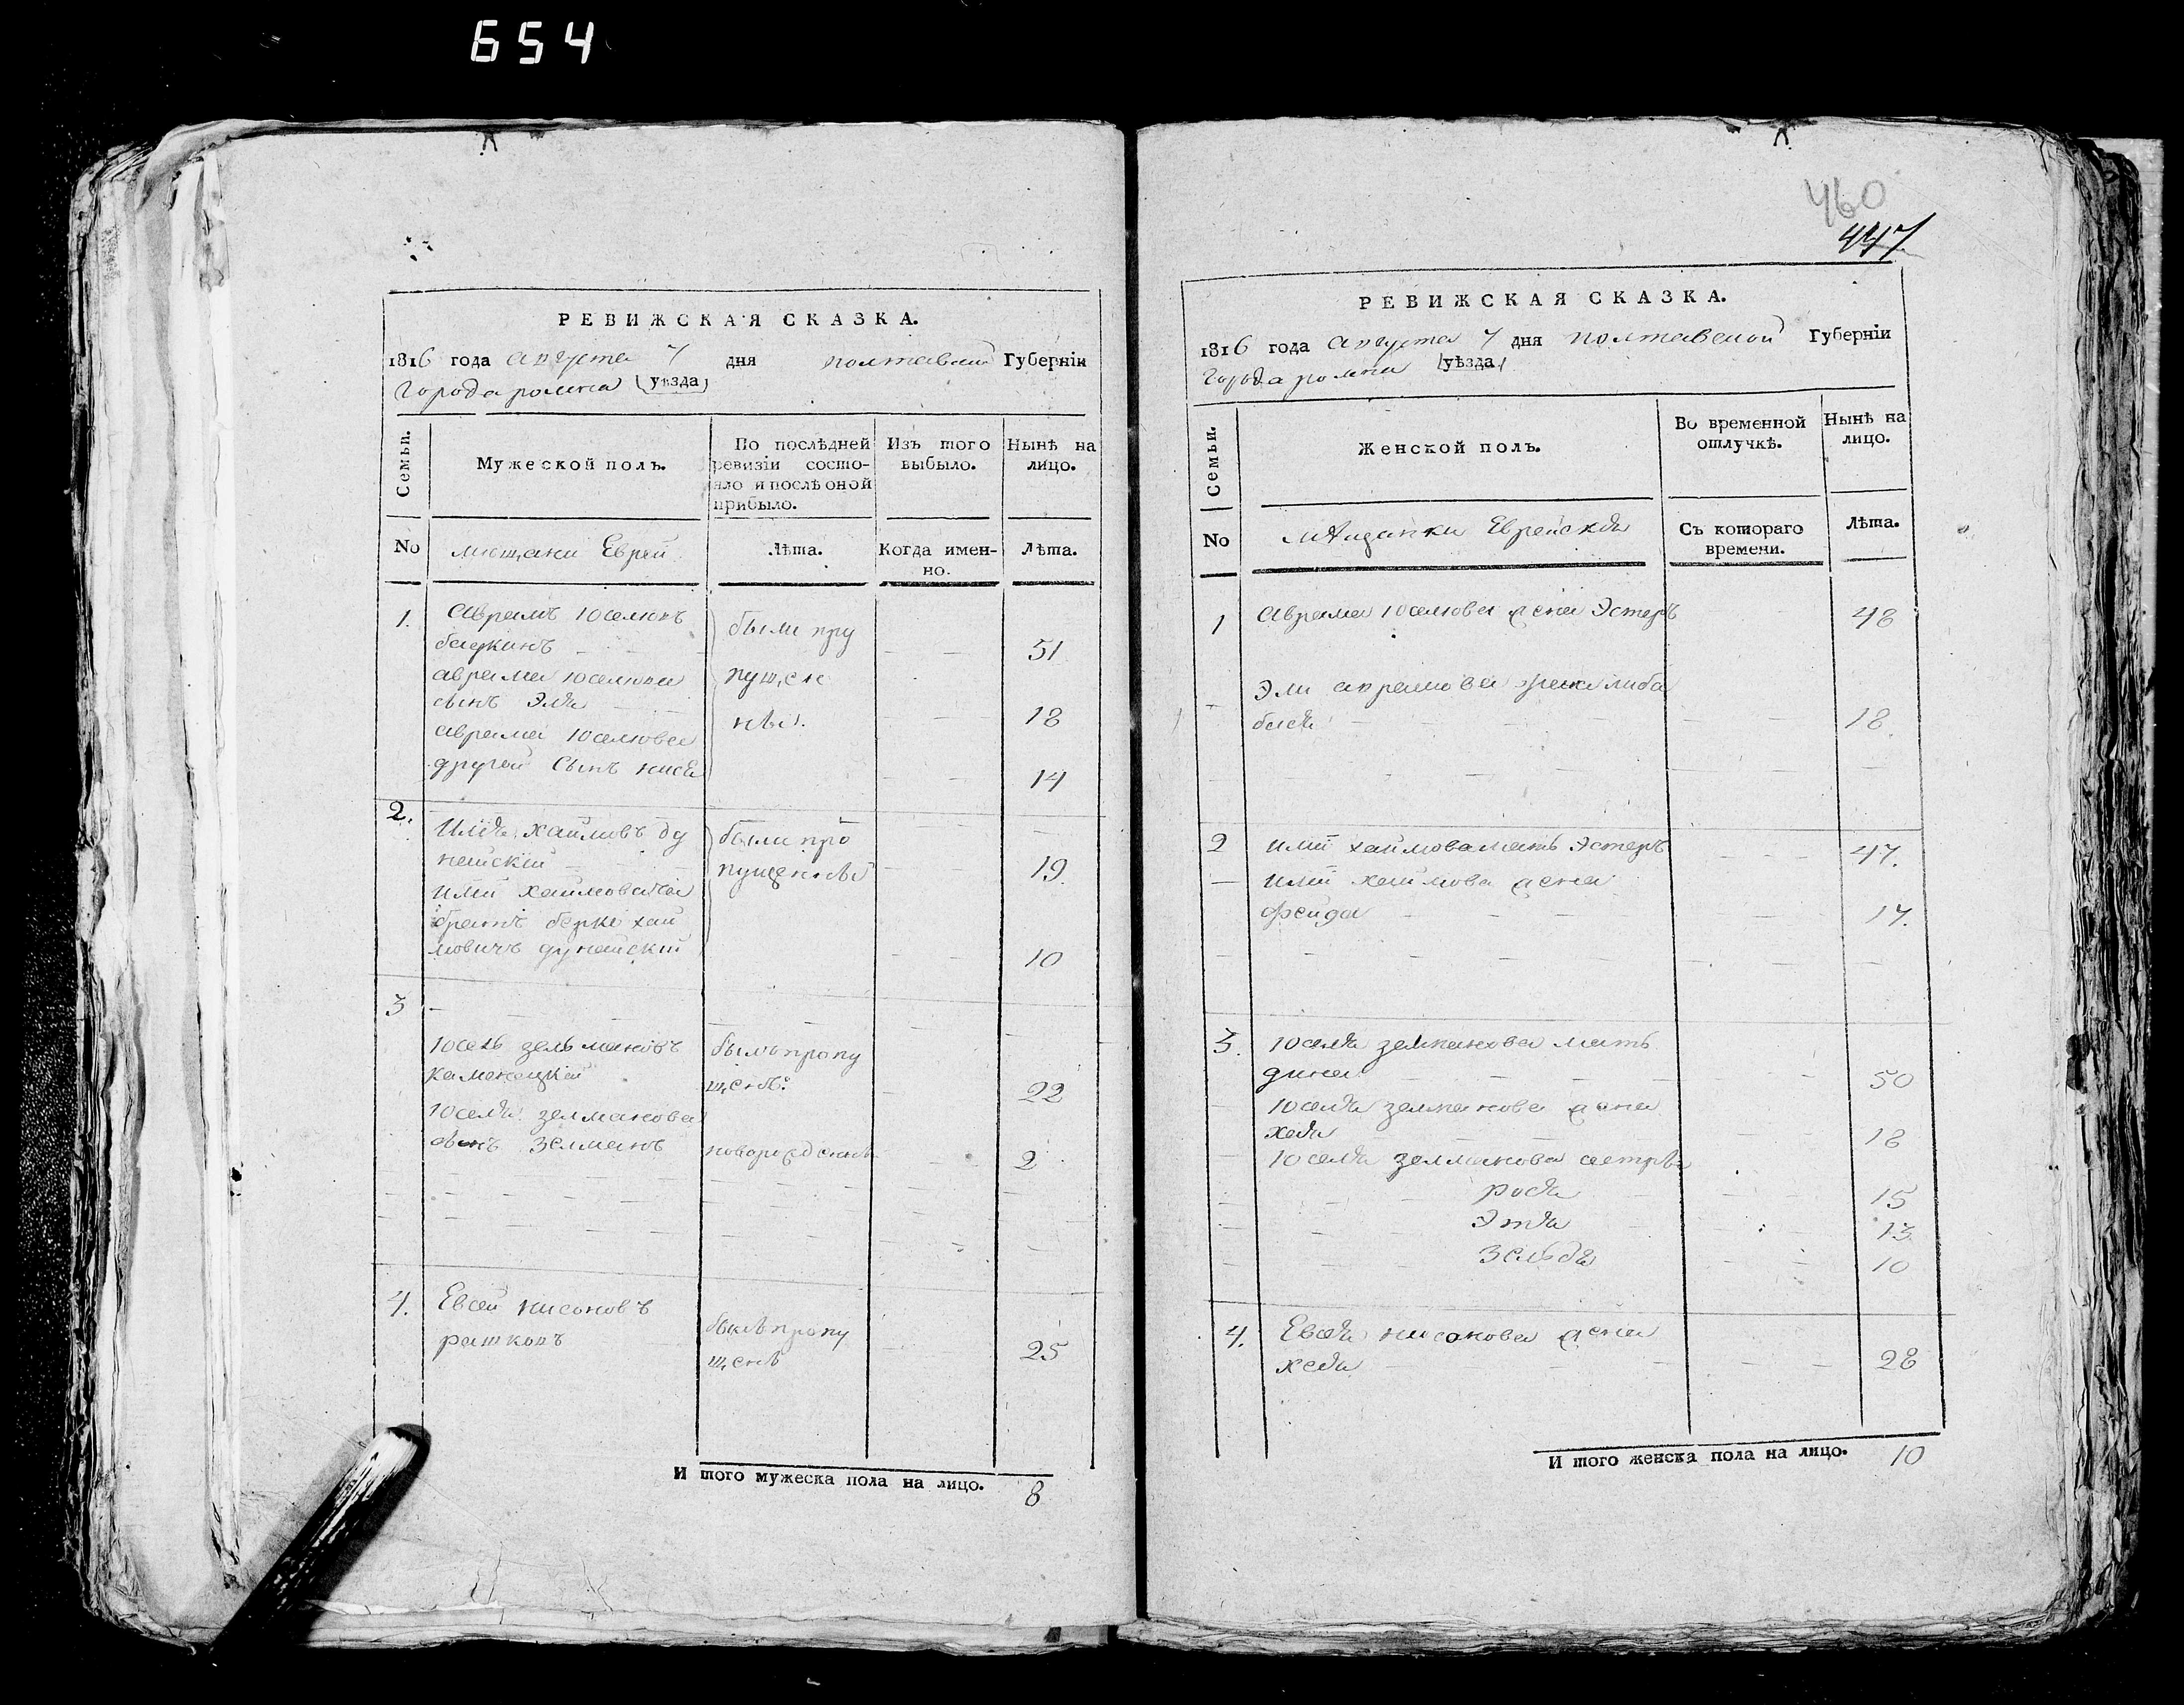 654
РЕВИЖСКАЯ СКАЗКА.
1816 года августа 7 дня полтавской Губерніи
Города ромна (уѣзда)
Семьи.
Мужеской полъ.
По послѣдней ревизіи состояло и послѣ оной прибыло.
Изъ того выбыло.
Нынѣ на лицо.
No
мещани Еврей
Лѣта.
Когда именно.
Лѣта.
1. Аврамъ Юселювъ
были пру
51
аврама юселюва
пущен
сынъ Эля
ны.
18
аврама Юселюва
другой Сынъ
14
2.
хаймовъ ду
были про
найскій
пущенны
19
хаймовича
братъ берке хай
мовичъ дунайскій
10
3
Юсель зельмановъ
былъ пропу
каменецкій
щенъ
22
Юселя зелмановa
сынъ Зелманъ
новорожденъ
2
4. Евсей нисоновъ
рашковъ
былъ пропу
щенъ
25
И того мужеска пола на лицо. 8
460
447
РЕВИЖСКАЯ СКАЗКА.
1816 года августа 7 дня полтавской Губерніи
Города ромни (уѣзда)
Семьи.
Женской полъ.
Во временной отлучкѣ.
Нынѣ на лицо.
No
Еврейскія
Съ котораго времени.
Лѣта.
1 Аврама Юселюва жена Эстеръ 48
Эли аврамова жена либа
бася 18
2 хаймова мать Эстеръ 47.
хаймова жена
фейда 17.
3. Юселя зелманова мать
дина 50
Юселя зелманова жена
хая 18
Юселя зелманова сестры
15
Этя 13
Зельда 10
4. Евсея нисонова жена
хая 28
И того женска пола на лицо. 10